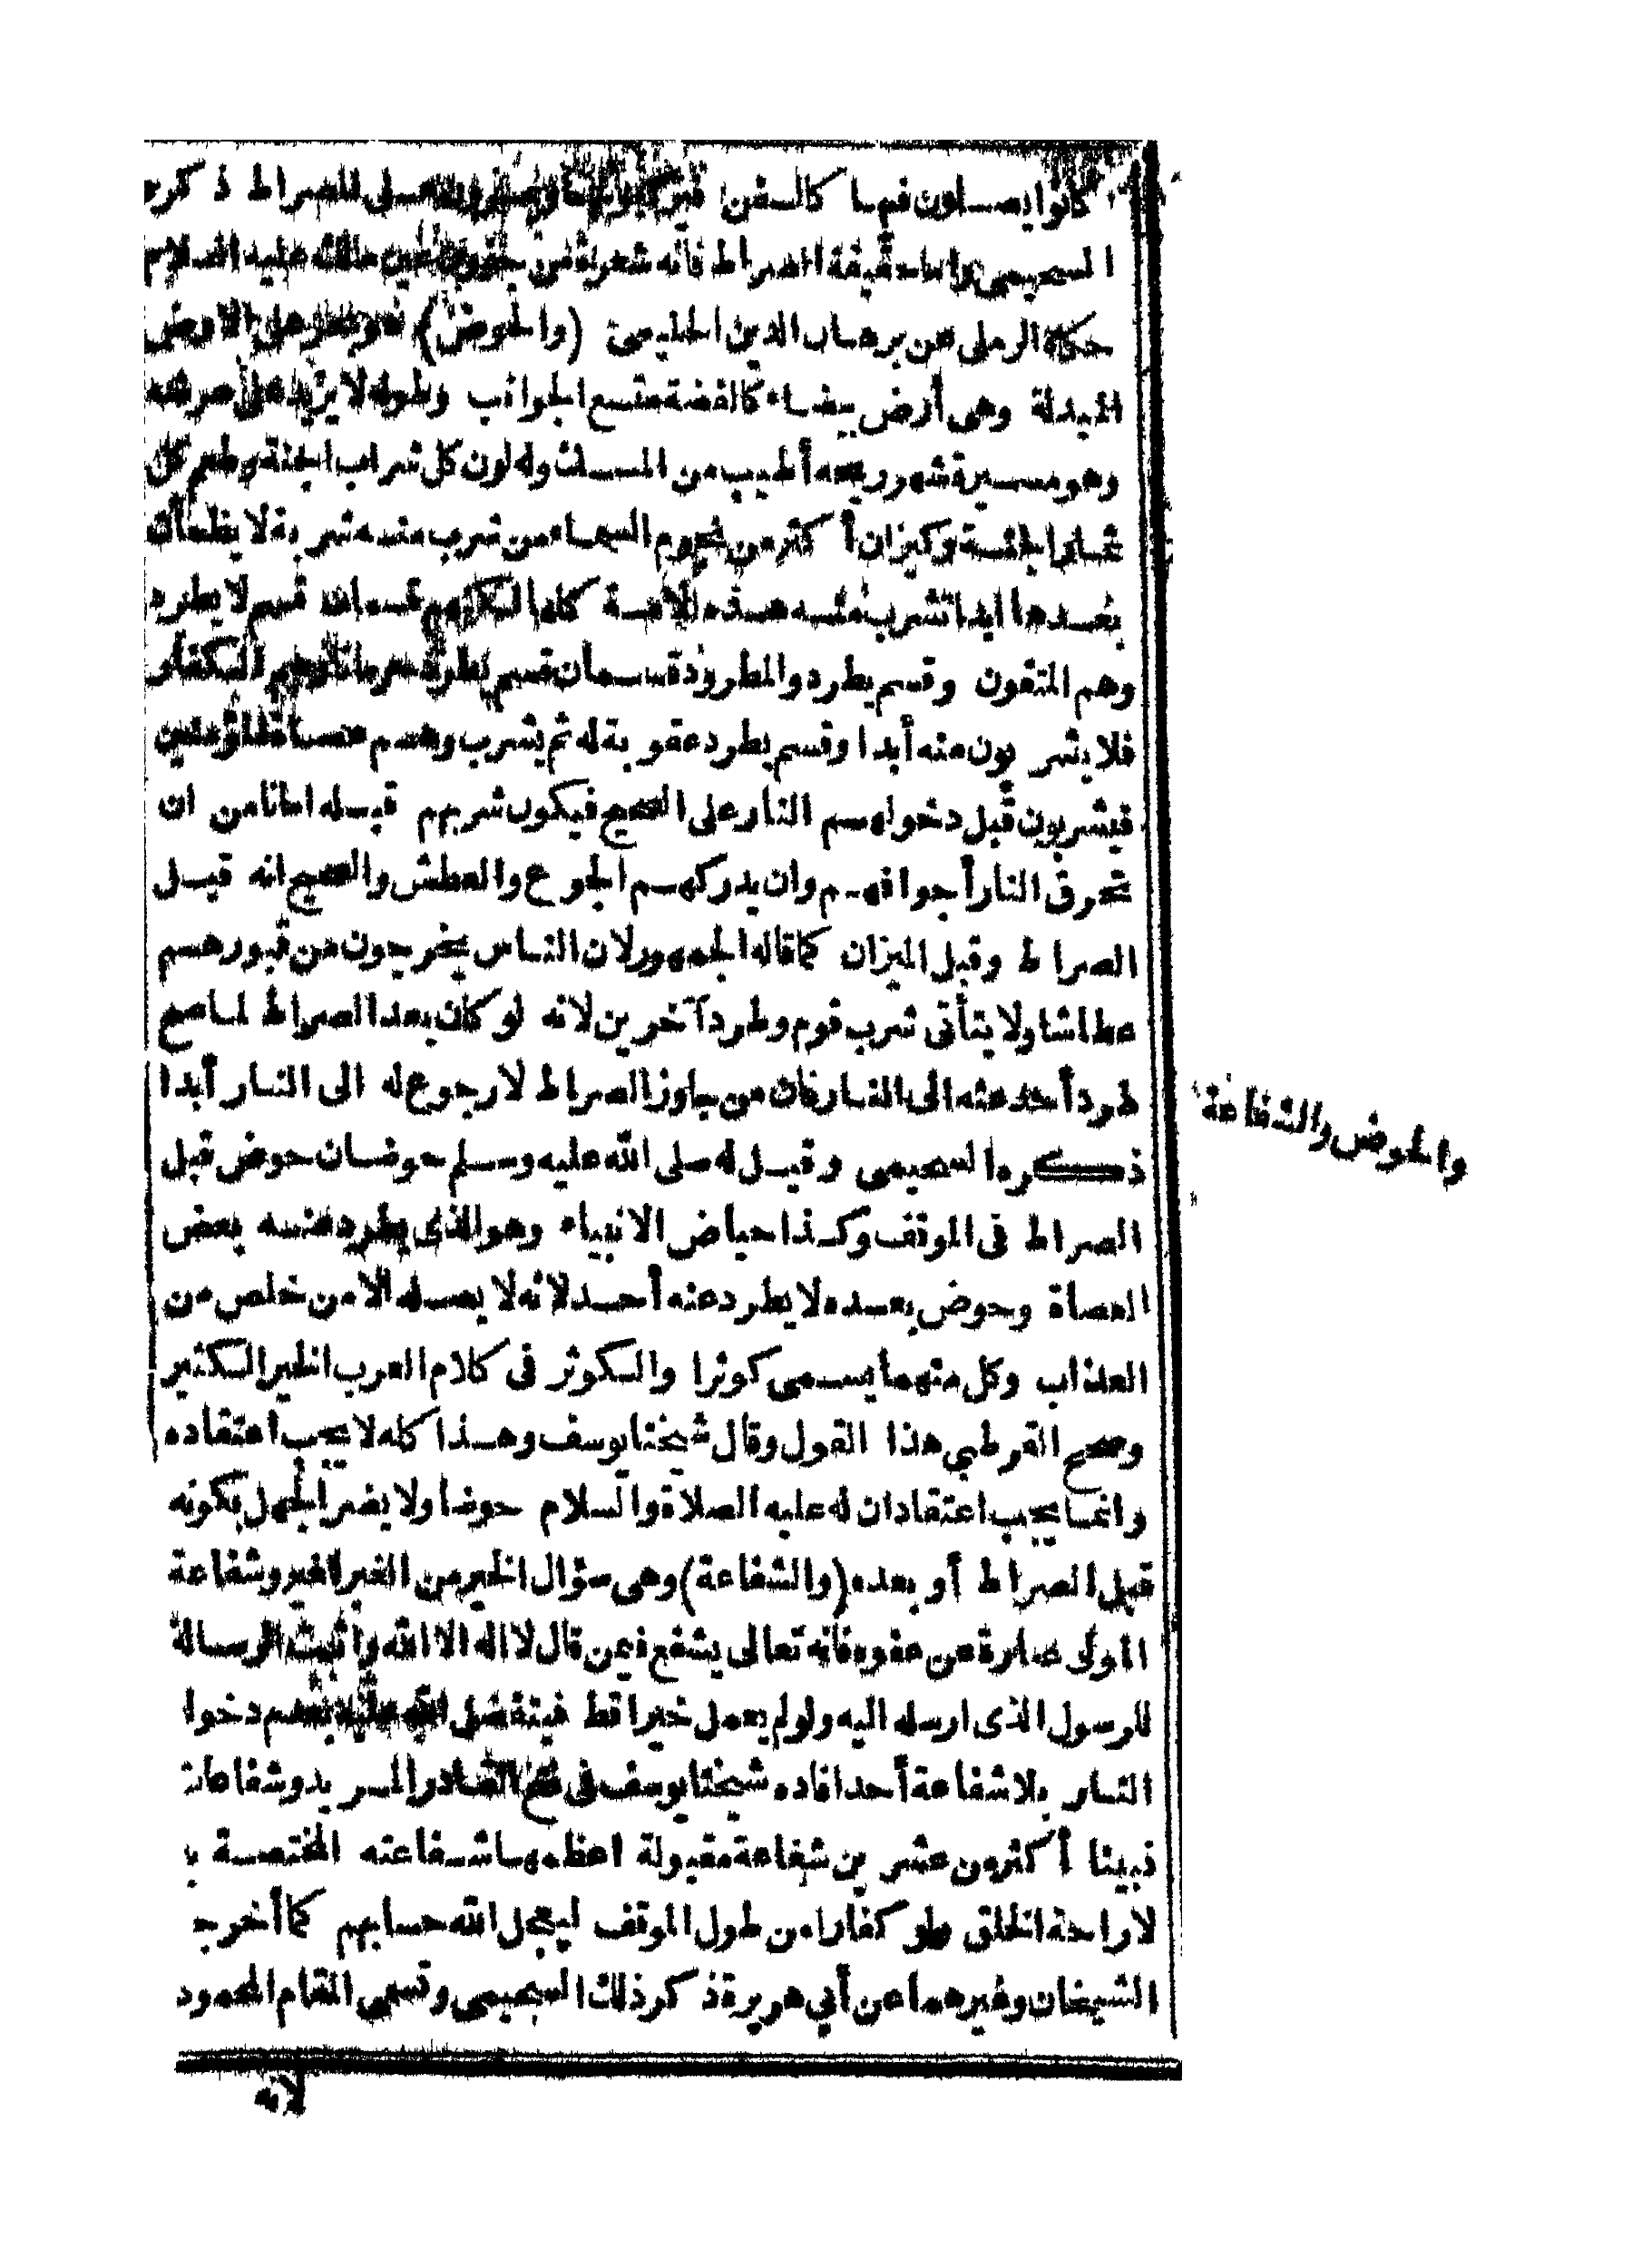 كانوا يصلون فيها كالسفن فيركبونها ويمرون على الصراط ذكره
السحيمى واما حقيقة الصراط فانه شعرة من جفون عين مالك عليه السلام
حكاه الرملى عن برهان الدين الحليمى (والحوض) نهر على الارض
المبدلة وهى أرض بيضاء كالفضة متسع الجوانب وطوله لا يزيد على عرضه
وهو مسيرة شهر وريحه أطيب من المسك وله لون كل شراب الجنة وطعم كل
ثمار الجنة وكيزان أكثر من نجوم السماء من شرب منه شربة لا يظمأ
بعدها ابدا تشرب منه هذه الامة كلها لكنهم قسمان قسم لا يطرد
وهم المتقون وقسم يطرد والمطرودة قسمان قسم يطرد حرمانا وهم الكفار
فلا يشربون منه أبدا وقسم يطرد عقوبة له ثم يشرب وهم عصاة المؤمنين
فيشربون قبل دخولهم النار على الصحيح فيكون شربهم قبله امانا من ان
تحرق النار أجوافهم وان يدركهم الجوع والعطش والصحيح انه قبل
الصراط وقبل الميزان كما قاله الجمهور لان الناس يخرجون من قبورهم
عطاشا ولا يتأتى شرب قوم وطرد آخرين لانه لو كان بعد الصراط لما صح
طرد أحد عنه الى النار فان من جاوز الصراط لا رجوع له الى النار أبدا
ذكره السحيمى وقيل له صلى الله عليه وسلم حوضان حوض قبل
الصراط فى الموقف وكذا حياض الانبياء وهو الذى يطرد عنه بعض
العصاة وحوض بعده لا يطرد عنه أحد لانه لا يصله الا من خلص من
العذاب وكل منهما يسمى كوثرا والكوثر فى كلام العرب الخير الكثير
وصحح القرطبى هذا القول وقال شيخنا يوسف وهذا كله لا يجب اعتقاده
وانما يجب اعتقاد ان له عليه الصلاة والسلام حوضا ولا يضر الجهل بكونه
قبل الصراط أو بعده (والشفاعة) وهى سؤال الخير من الغير للغير وشفاعة
المولى عبارة عن عفوه فانه تعالى يشفع فيمن قال لا اله الا الله وأثبت الرسالة
للرسول الذى ارسله اليه ولو لم يعمل خيرا قط فيتفضل الله عليه بعدم دخول
النار بلا شفاعة أحد افاده شيخنا يوسف فى فتح القادر المريد وشفاعات
نبينا أكثر من عشرين شفاعة مقبولة اعظمها شفاعته المختصة به
لاراحة الخلق ولو كفارا من طول الموقف ليعجل الله حسابهم كما أخرجه
الشيخان وغيرهما عن أبي هريرة ذكر ذلك السحيمى وتسمى المقام المحمود
لانه
والحوض والشفاعة